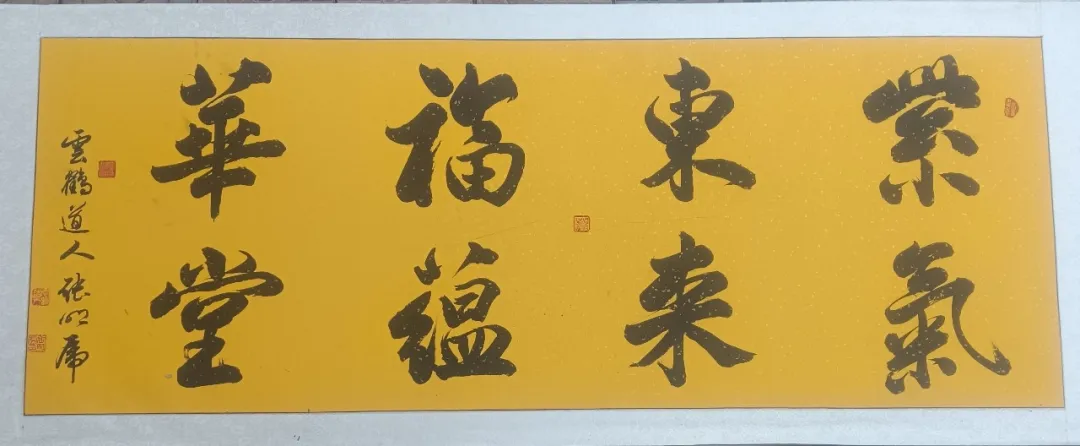 紫氣
東来
福蕴
華堂
雲鶴道人張明虎